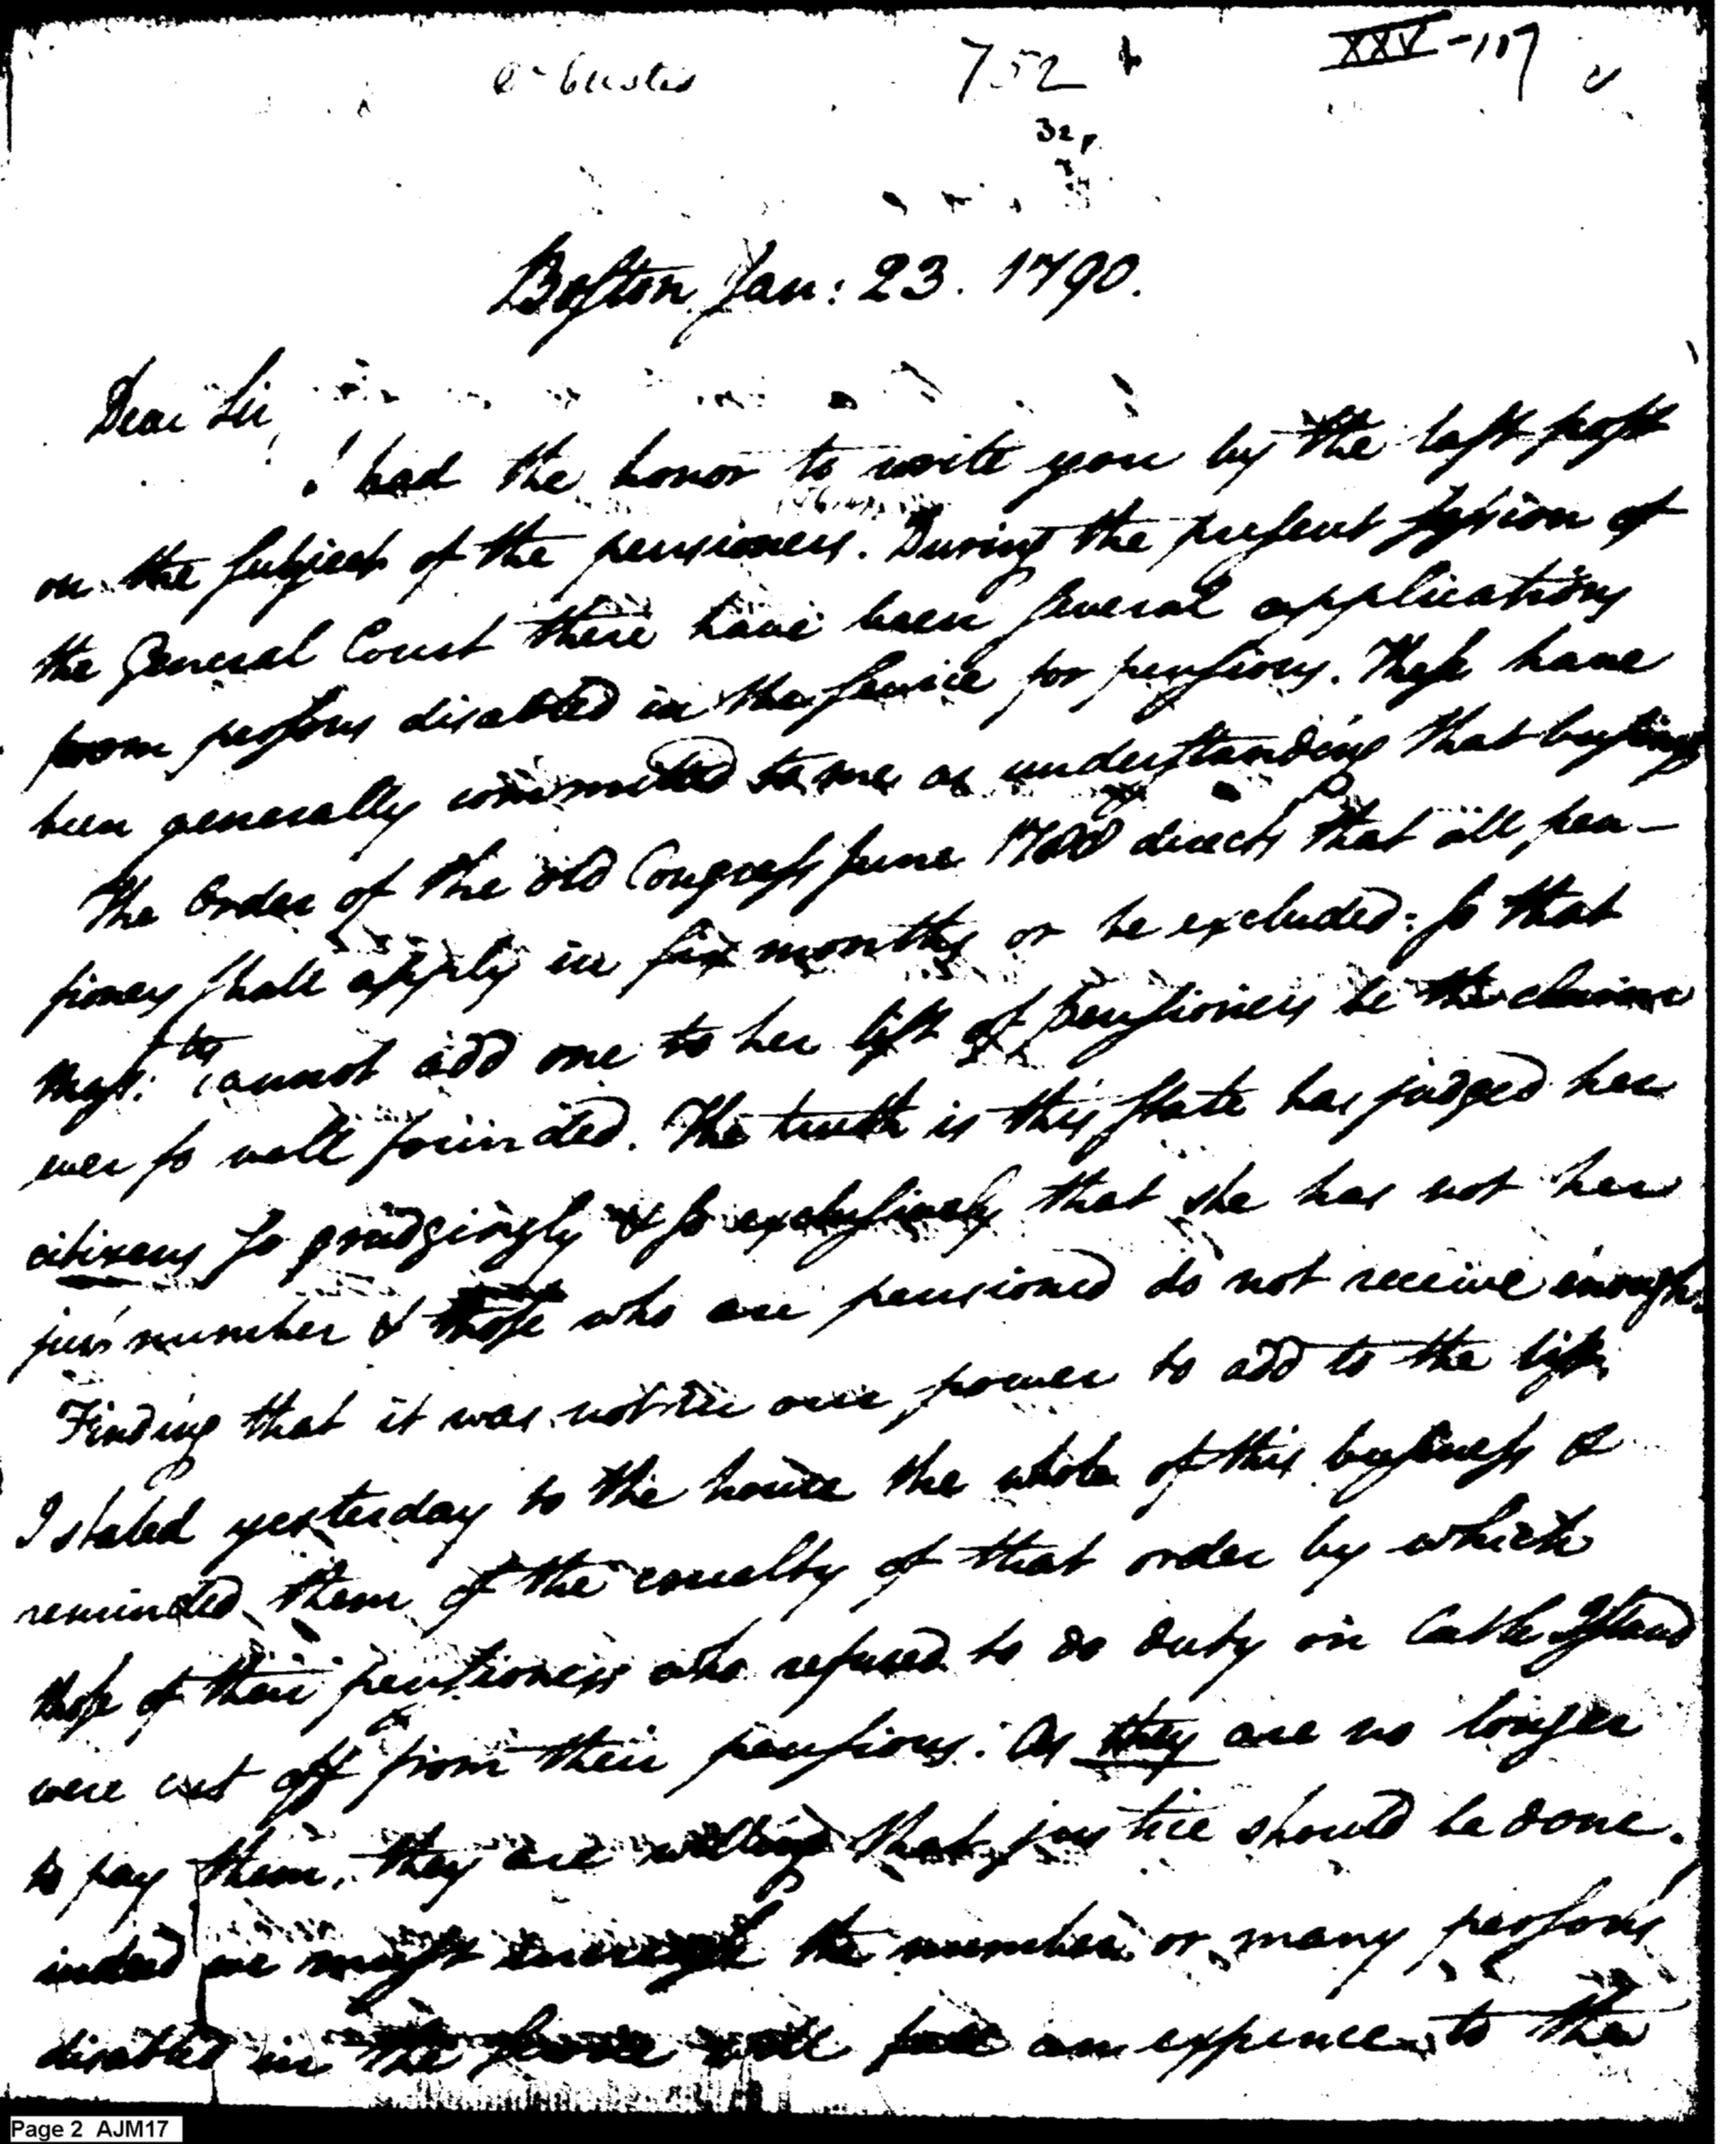 Dr Eustis 752 XXV-117
32,
Boston Jan: 23. 1790.
Dear Sir,
I had the honor to write you by the last post
on the subject of the pensioners. During the present session of
the General Court there have been several applications
from persons disabled in the service for pensions. These have
been generally committed to me as understanding that business
The order of the old Congress June 1788 directs that all pen-
sioners shall apply in six months or be excluded: so that
Mass: tts cannot add one to her list of pensioners be the claim
ever so well founded. The truth is this state has judged her
citizens so grudgingly & so exclusively that she has not her
just number & those who are pensioned do not receive enough.
Finding that it was not in our power to add to the list
I stated yesterday to the house the whole of this business &
reminded them of the cruelty of that order by which
those of their pensioners who refused to do duty on Castle Island
were cut off from their pensions. As they are no longer
to pay them, they are willing that justice should be done.
indeed we must the number or many persons
disabled in the service will fall an expence to the
Page 2 AJM17